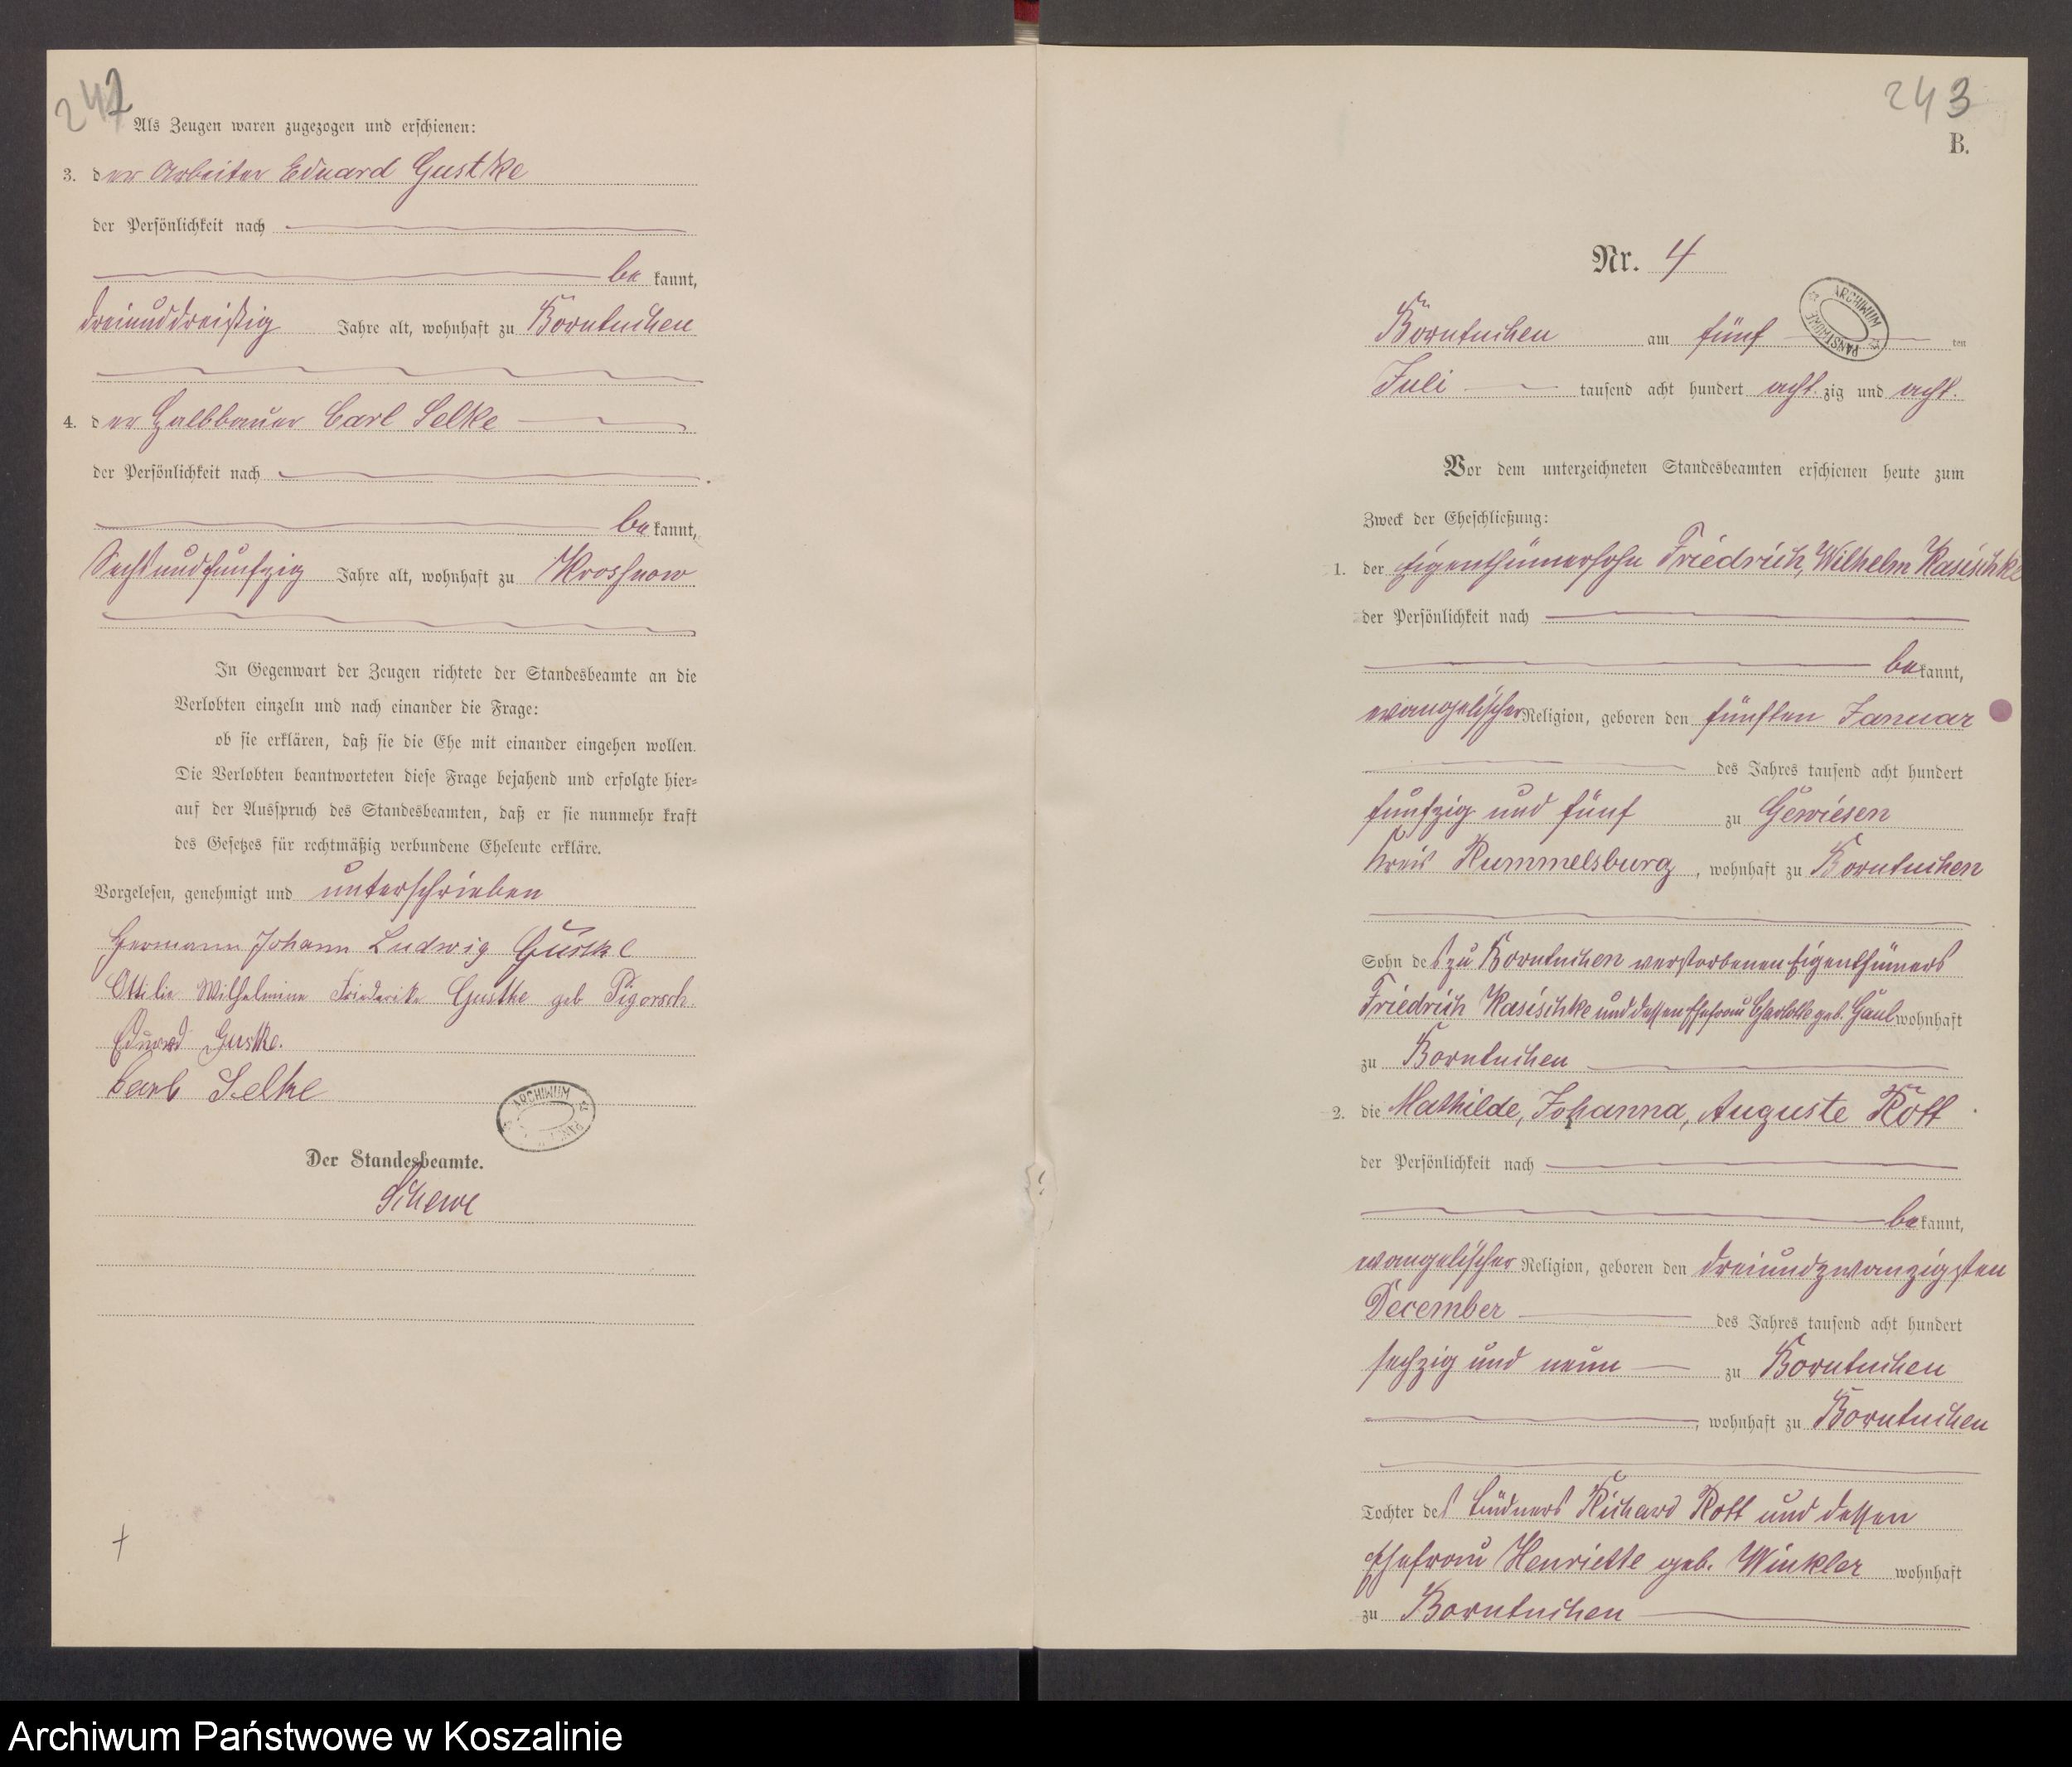 242
Als Zeugen waren zugezogen und erschienen:
3. der Arbeiter Eduard Gustke
der Persönlichkeit nach
bekannt,
dreiunddreißig Jahre alt, wohnhaft zu Borntuchen
4. der Halbbauer Carl Selke
der Persönlichkeit nach
bekannt,
Sechsundfunfzig Jahre alt, wohnhaft zu Krossnow
In Gegenwart der Zeugen richtete der Standesbeamte an die
Verlobten einzeln und nach einander die Frage:
ob sie erklären, daß sie die Ehe mit einander eingehen wollen.
Die Verlobten beantworteten diese Frage bejahend und erfolgte hier=
auf der Ausspruch des Standesbeamten, daß er sie nunmehr kraft
des Gesetzes für rechtmäßig verbundene Eheleute erkläre.
Vorgelesen, genehmigt und unterschrieben
Hermann Johann Ludwig Guske
Ottilie Wilhelmine Friederike Gustke geb Pigorsch.
Eduard Guske.
Carl Selke
ARCHIWUM
Der Standesbeamte.
Schewe
243
B.
Nr. 4
ARCHIWUM PAŃSTWOWE
Borntuchen am fünf ten
Juli tausend acht hundert achtzig und acht.
Vor dem unterzeichneten Standesbeamten erschienen heute zum
Zweck der Eheschließung:
1. der Eigenthümersohn Friedrich, Wilhelm Kasischke
der Persönlichkeit nach
bekannt,
evangelischer Religion, geboren den fünften Januar
des Jahres tausend acht hundert
funfzig und fünf zu Gewiesen
Kreis Rummelsburg, wohnhaft zu Borntuchen
Sohn des zu Borntuchen verstorbenen Eigenthümers
Friedrich Kasischke und dessen Ehefrau Charlotte geb. Gaul wohnhaft
zu Borntuchen
2. die Mathilde, Johanna, Auguste Rott
der Persönlichkeit nach
bekannt,
evangelischer Religion, geboren den dreiundzwanzigsten
December des Jahres tausend acht hundert
sechzig und neun zu Borntuchen
, wohnhaft zu Borntuchen
Tochter des Büdners Richard Rott und dessen
Ehefrau Henriette geb. Winkler wohnhaft
zu Borntuchen
Archiwum Państwowe w Koszalinie